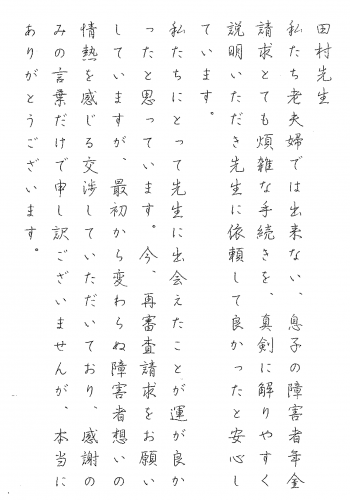 田村先生
私たち老夫婦では出来ない、息子の障害者年金
請求とても煩雑な手続きを、真剣に解りやすく
説明いただき先生に依頼して良かったと安心し
ています。
私たちにとって先生に出会えたことが運が良か
ったと思っています。今、再審査請求をお願い
していますが、最初から変わらぬ障害者想いの
情熱を感じる交渉していただいており、感謝の
みの言葉だけで申し訳ございませんが、本当に
ありがとうございます。